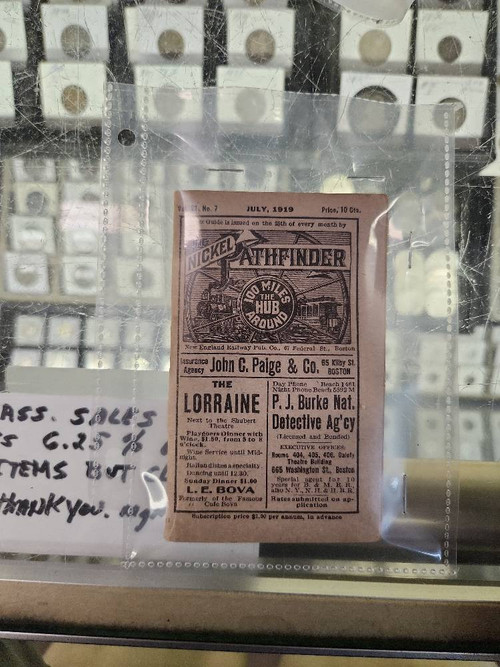 No. 7 JULY, 1919 Price, 10 Cts.
Guide is issued on the 25th of every month by
NICKEL
PATHFINDER
100 MILES
THE
HUB
AROUND
New England Railway Pub. Co., Federal St., Boston
Insurance
Agency
John C. Paige & Co.
65 Kilby St
BOSTON
THE
LORRAINE
Next to the Shubert
Theatre
Playgoers Dinner with
Wine, $1.50, from 5 to 8
o'clock.
Wine Service until Mid-
night.
a specialty
Dancing until 12.30.
Sunday Dinner $1.50
L. E. BOVA
Formerly of the Famous
Cafe Bova
Day Phone Beach 1461
Night Phone Beach
P. J. Burke Nat.
Detective Ag'cy
(Licensed and Bonded)
EXECUTIVE OFFICES:
Rooms 404, 405, 406, Gaiety
Theatre Building
665 Washington St., Boston
Special agent for 10
years for B. & M. R. R.,
also N. Y., N. H. & H. R. R.
Rates submitted on ap-
plication.
Subscription price per annum, in advance
ASS. SALES
6.25 %
ITEMS BUT
THANK YOU.